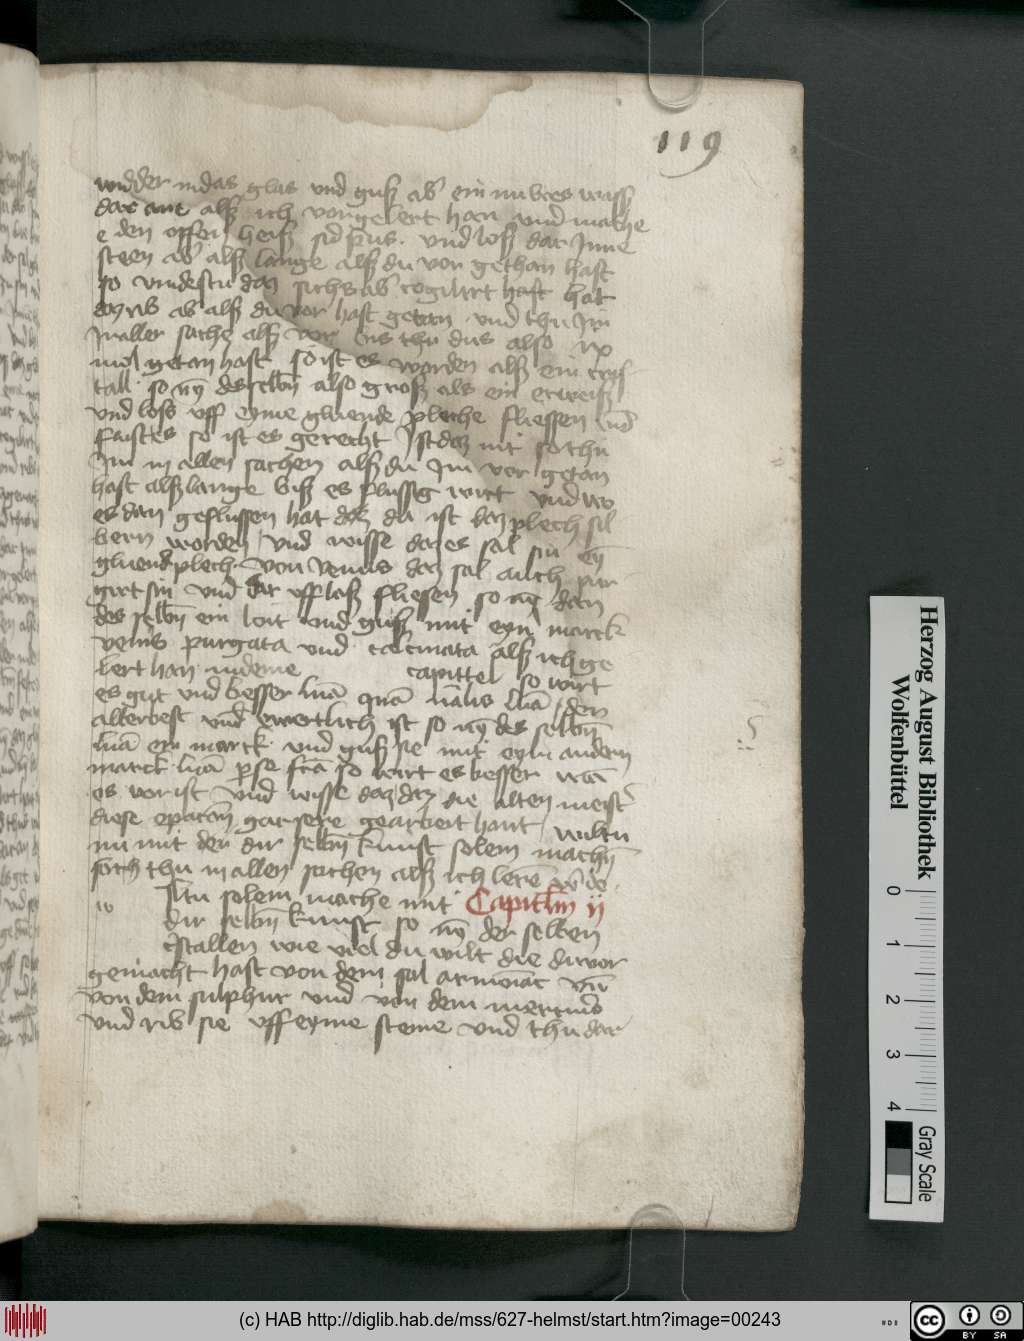 119
widder in das glas und guß ab ein nubces wass
dar ane alß ich vorgelert han und mache
den offen heiß sicl kus. und loß dar Inne
steen ab alß lange alß du vor gethan hast
so vindestu daz sichs ab cogilirt hast hat
daz rib ab alß du vor hast getan und thu Im
In aller sache alß vor bis thu dus also ix
mol getan hast so ist es worden alß ein cris
tall so nȳ desselbn also groß als ein erweiß
und loß uff eyme gluende pleche fliessen und
faistes so ist es gerecht Ist daz nit so thu
Im in allen sachen alß du Im vor getan
hast alß lange biß es flussig wirt und wo
es dan geflussen hat daz da ist daz plech sil
bern worden und wisse daz es sal sin eȳ
gluend plech von venus daz sal auch pur
girt sin und dar uff laß fliesen so nȳ dan
des selbn ein loit und guß mit eyn marck
venus purgata und calcinata alß ich ge
lert han in deme capittel so wirt
es gut und besser lūa quā nālis lūa den
allerbest und ewertlich ist so nȳ des selbn
lūa ein marck und guß sie mit eyn andern
marck lūa p se fcā so wirt es besser wan
es vor ist und wisse daz daz die alten meist
diese eparacōn gar sere gearbeit hant wiltu
nu mit der dir selbn kunst solem machn
sich thu in allen sachen alß ich lere
Iltu solem mache mit Capitlm ij
dir selbn kunst so nȳ der selben
cstallen wie viel du wilt die du vor
gemacht hast von dem sal armōiac vn̄
von dem sulphur und von dem mercurio
und rib sie uff eyme steine und thu dar
Herzog August Bibliothek
Wolfenbüttel
0 1 2 3 4
Gray Scale
(c) HAB http://diglib.hab.de/mss/627-helmst/start.htm?image=00243
cc BY SA